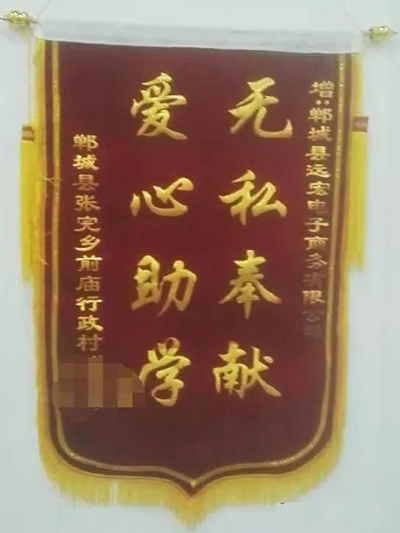 增:郸城县远宏电子商务有限公司
无私奉献
爱心助学
郸城县张完乡前庙行政村